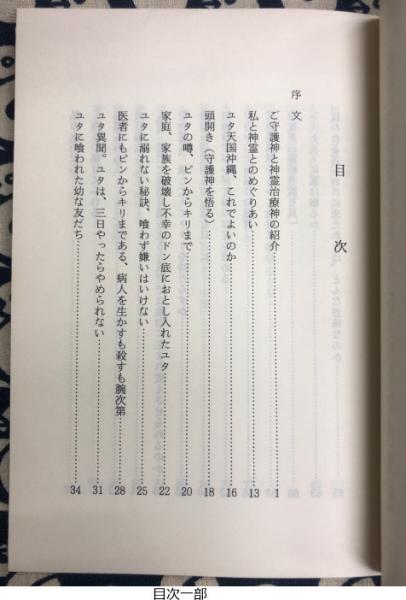 目次
序文
ご守護神と神霊治療神の紹介……1
私と神霊とのめぐりあい……13
ユタ天国沖縄、これでよいのか……16
頭開き(守護神を悟る)……18
ユタの噂、ピンからキリまで……20
家庭、家族を破壊し不幸のドン底におとし入れたユタ……22
ユタに溺れない秘訣、喰わず嫌いはいけない……25
医者にもピンからキリまである、病人を生かすも殺すも腕次第……28
ユタ異聞。ユタは、三日やったらやめられない……31
ユタに喰われた幼な友だち……34
目次一部